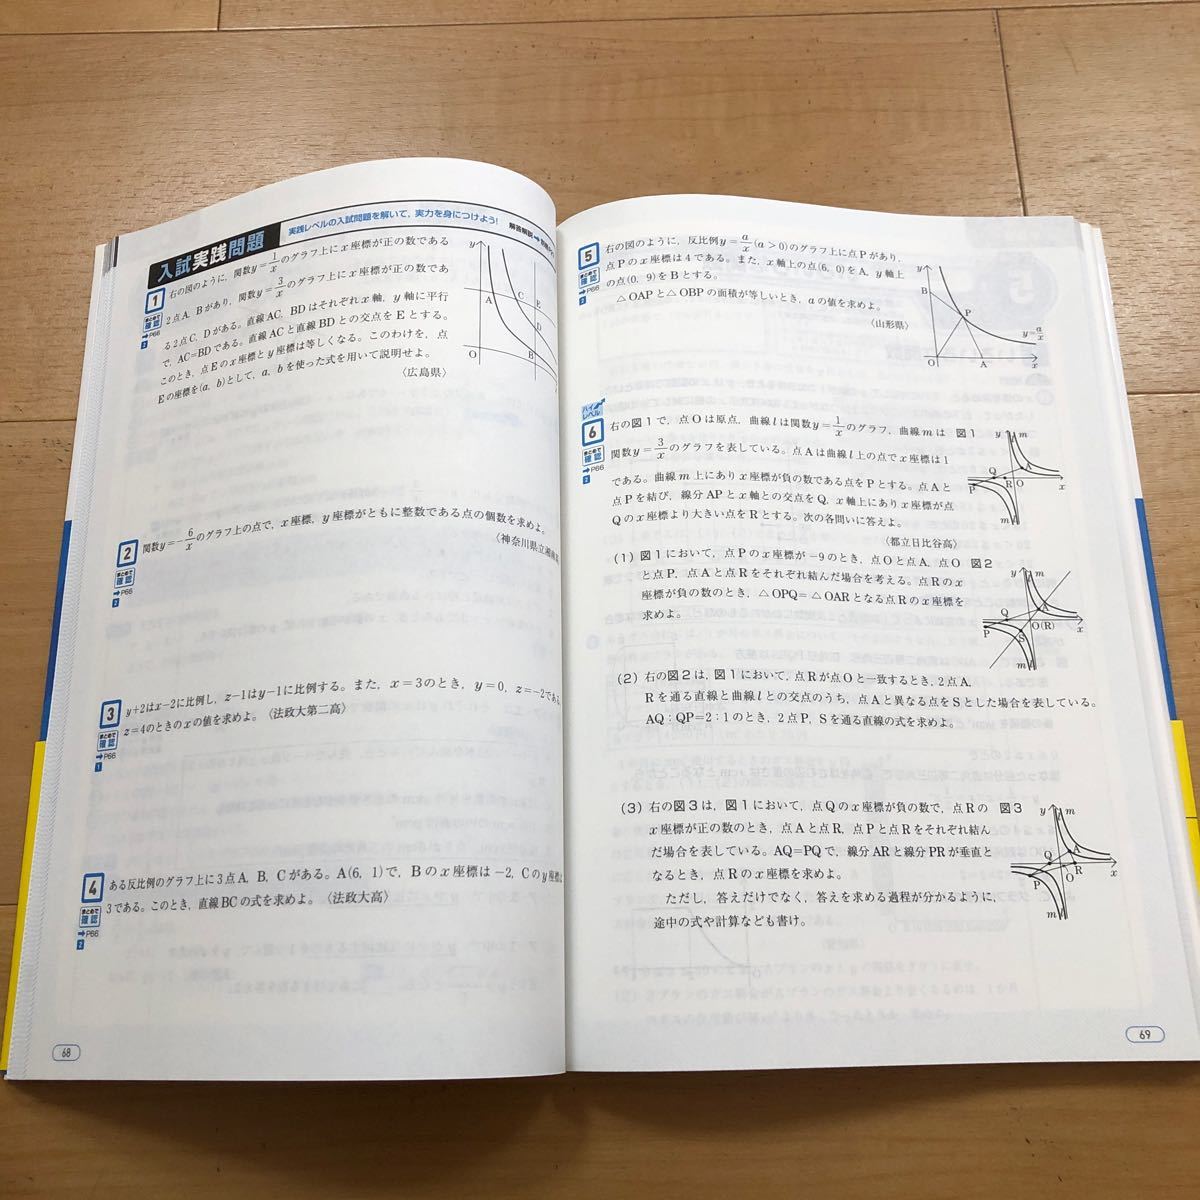 入試実践問題
実践レベルの入試問題を解いて，実力を身につけよう！ 解答解説➡
1
まとめて
確認
➡P66
2
右の図のように，関数y=1/xのグラフ上にx座標が正の数である
2点A，Bがあり，関数y=3/xのグラフ上にx座標が正の数であ
る2点C，Dがある。直線AC，BDはそれぞれx軸，y軸に平行
で，AC=BDである。直線ACと直線BDとの交点をEとする。
このとき，点Eのx座標とy座標は等しくなる。このわけを，点
Eの座標を(a, b)として，a，bを使った式を用いて説明せよ。
〈広島県〉
y
A
C
E
D
O
B
2
まとめて
確認
➡P66
2
関数y=-6/xのグラフ上の点で，x座標，y座標がともに整数である点の個数を求めよ。
〈神奈川県立湘南高
3
まとめて
確認
➡P66
1
y+2はx-2に比例し，z-1はy-1に比例する。また，x=3のとき，y=0，z=-2であ
z=4のときのxの値を求めよ。〈法政大第二高〉
4
まとめて
確認
➡P66
2
ある反比例のグラフ上に3点A，B，Cがある。A(6, 1)で，Bのx座標は-2，Cのy座標
3である。このとき，直線BCの式を求めよ。〈法政大高〉
68
5
まとめて
確認
➡P66
2
右の図のように，反比例y=a/x(a>0)のグラフ上に点Pがあり，
点Pのx座標は4である。また，x軸上の点(6, 0)をA，y軸上
の点(0, 9)をBとする。
△OAPと△OBPの面積が等しいとき，aの値を求めよ。
〈山形県〉
y
B
P
y=a/x
O
A
x
ハイ
レベル
6
まとめて
確認
➡P66
2
右の図1で，点Oは原点，曲線lは関数y=1/xのグラフ，曲線mは
関数y=3/xのグラフを表している。点Aは曲線l上の点でx座標は1
である。曲線m上にありx座標が負の数である点をPとする。点Aと
点Pを結び，線分APとx軸との交点をQ，x軸上にありx座標が点
Qのx座標より大きい点をRとする。次の各問いに答えよ。
〈都立日比谷高〉
図1
y
l
m
A
Q
R
O
x
P
m
(1) 図1において，点Pのx座標が-9のとき，点Oと点A，点O
と点P，点Aと点Rをそれぞれ結んだ場合を考える。点Rのx
座標が負の数のとき，△OPQ=△OARとなる点Rのx座標を
求めよ。
図2
y
m
A
Q
O(R)
x
P
S
m
(2) 右の図2は，図1において，点Rが点Oと一致するとき，2点A，
Rを通る直線と曲線lとの交点のうち，点Aと異なる点をSとした場合を表している。
AQ：QP=2：1のとき，2点P，Sを通る直線の式を求めよ。
(3) 右の図3は，図1において，点Qのx座標が負の数で，点Rの
x座標が正の数のとき，点Aと点R，点Pと点Rをそれぞれ結ん
だ場合を表している。AQ=PQで，線分ARと線分PRが垂直と
なるとき，点Rのx座標を求めよ。
ただし，答えだけでなく，答えを求める過程が分かるように，
途中の式や計算なども書け。
図3
y
m
A
Q
x
P
O
R
m
69